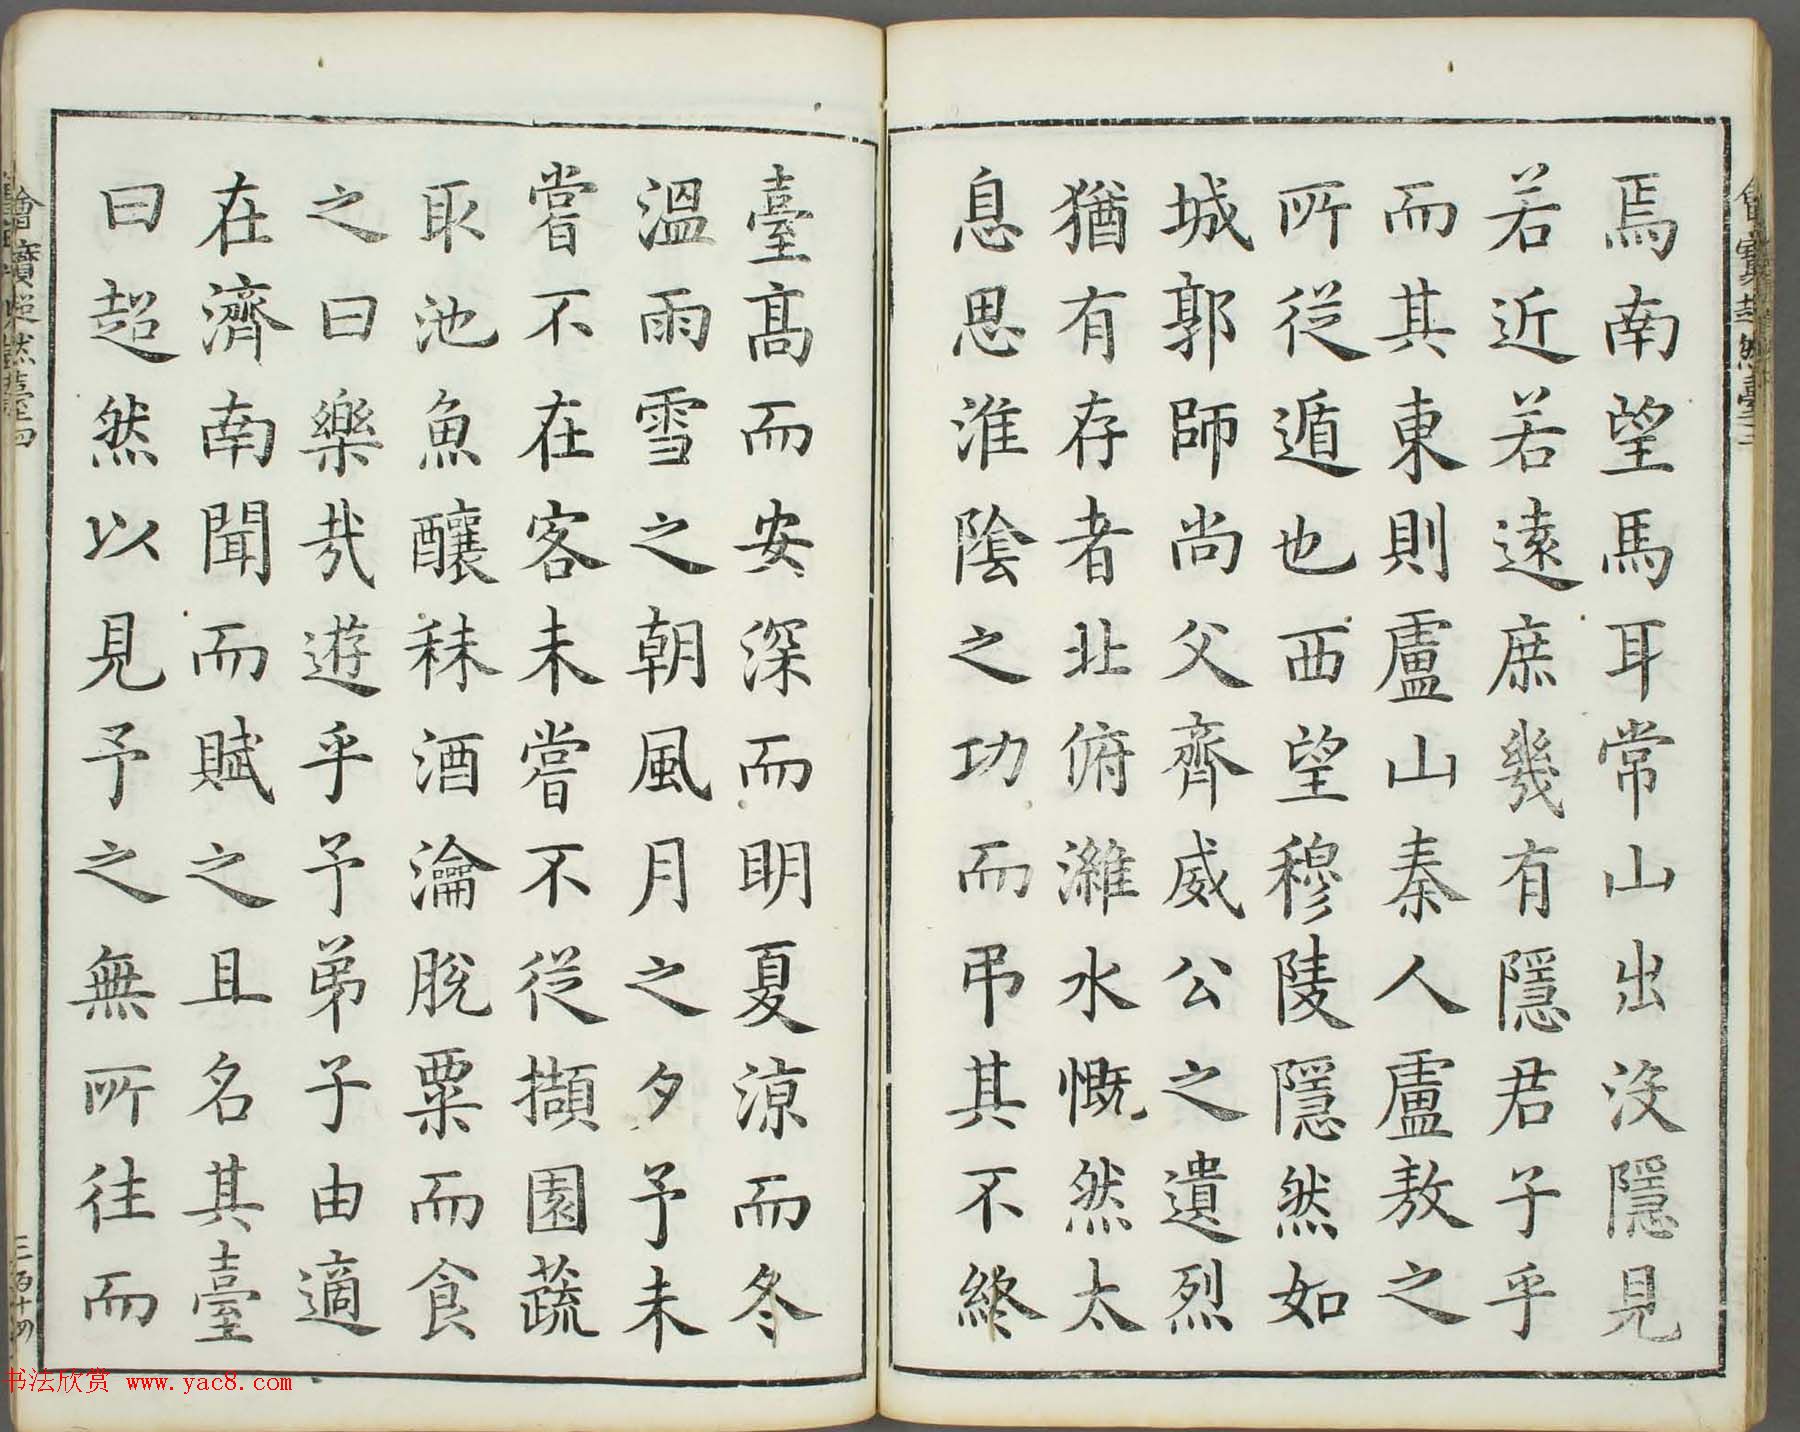 焉南望馬耳常山出没隱見
若近若逺庶幾有隱君子乎
而其東則盧山秦人盧敖之
所從遁也西望穆陵隱然如
城郭師尚父齊威公之遺烈
猶有存者北俯濰水慨然太
息思淮陰之功而弔其不終
臺髙而安深而明夏涼而冬
溫雨雪之朝風月之夕予未
嘗不在客未嘗不從擷園蔬
取池魚釀秫酒瀹脫粟而食
之曰樂哉遊乎予弟子由適
在濟南聞而賦之且名其臺
曰超然以見予之無所往而
三百十四
书法欣赏 www.yac8.com